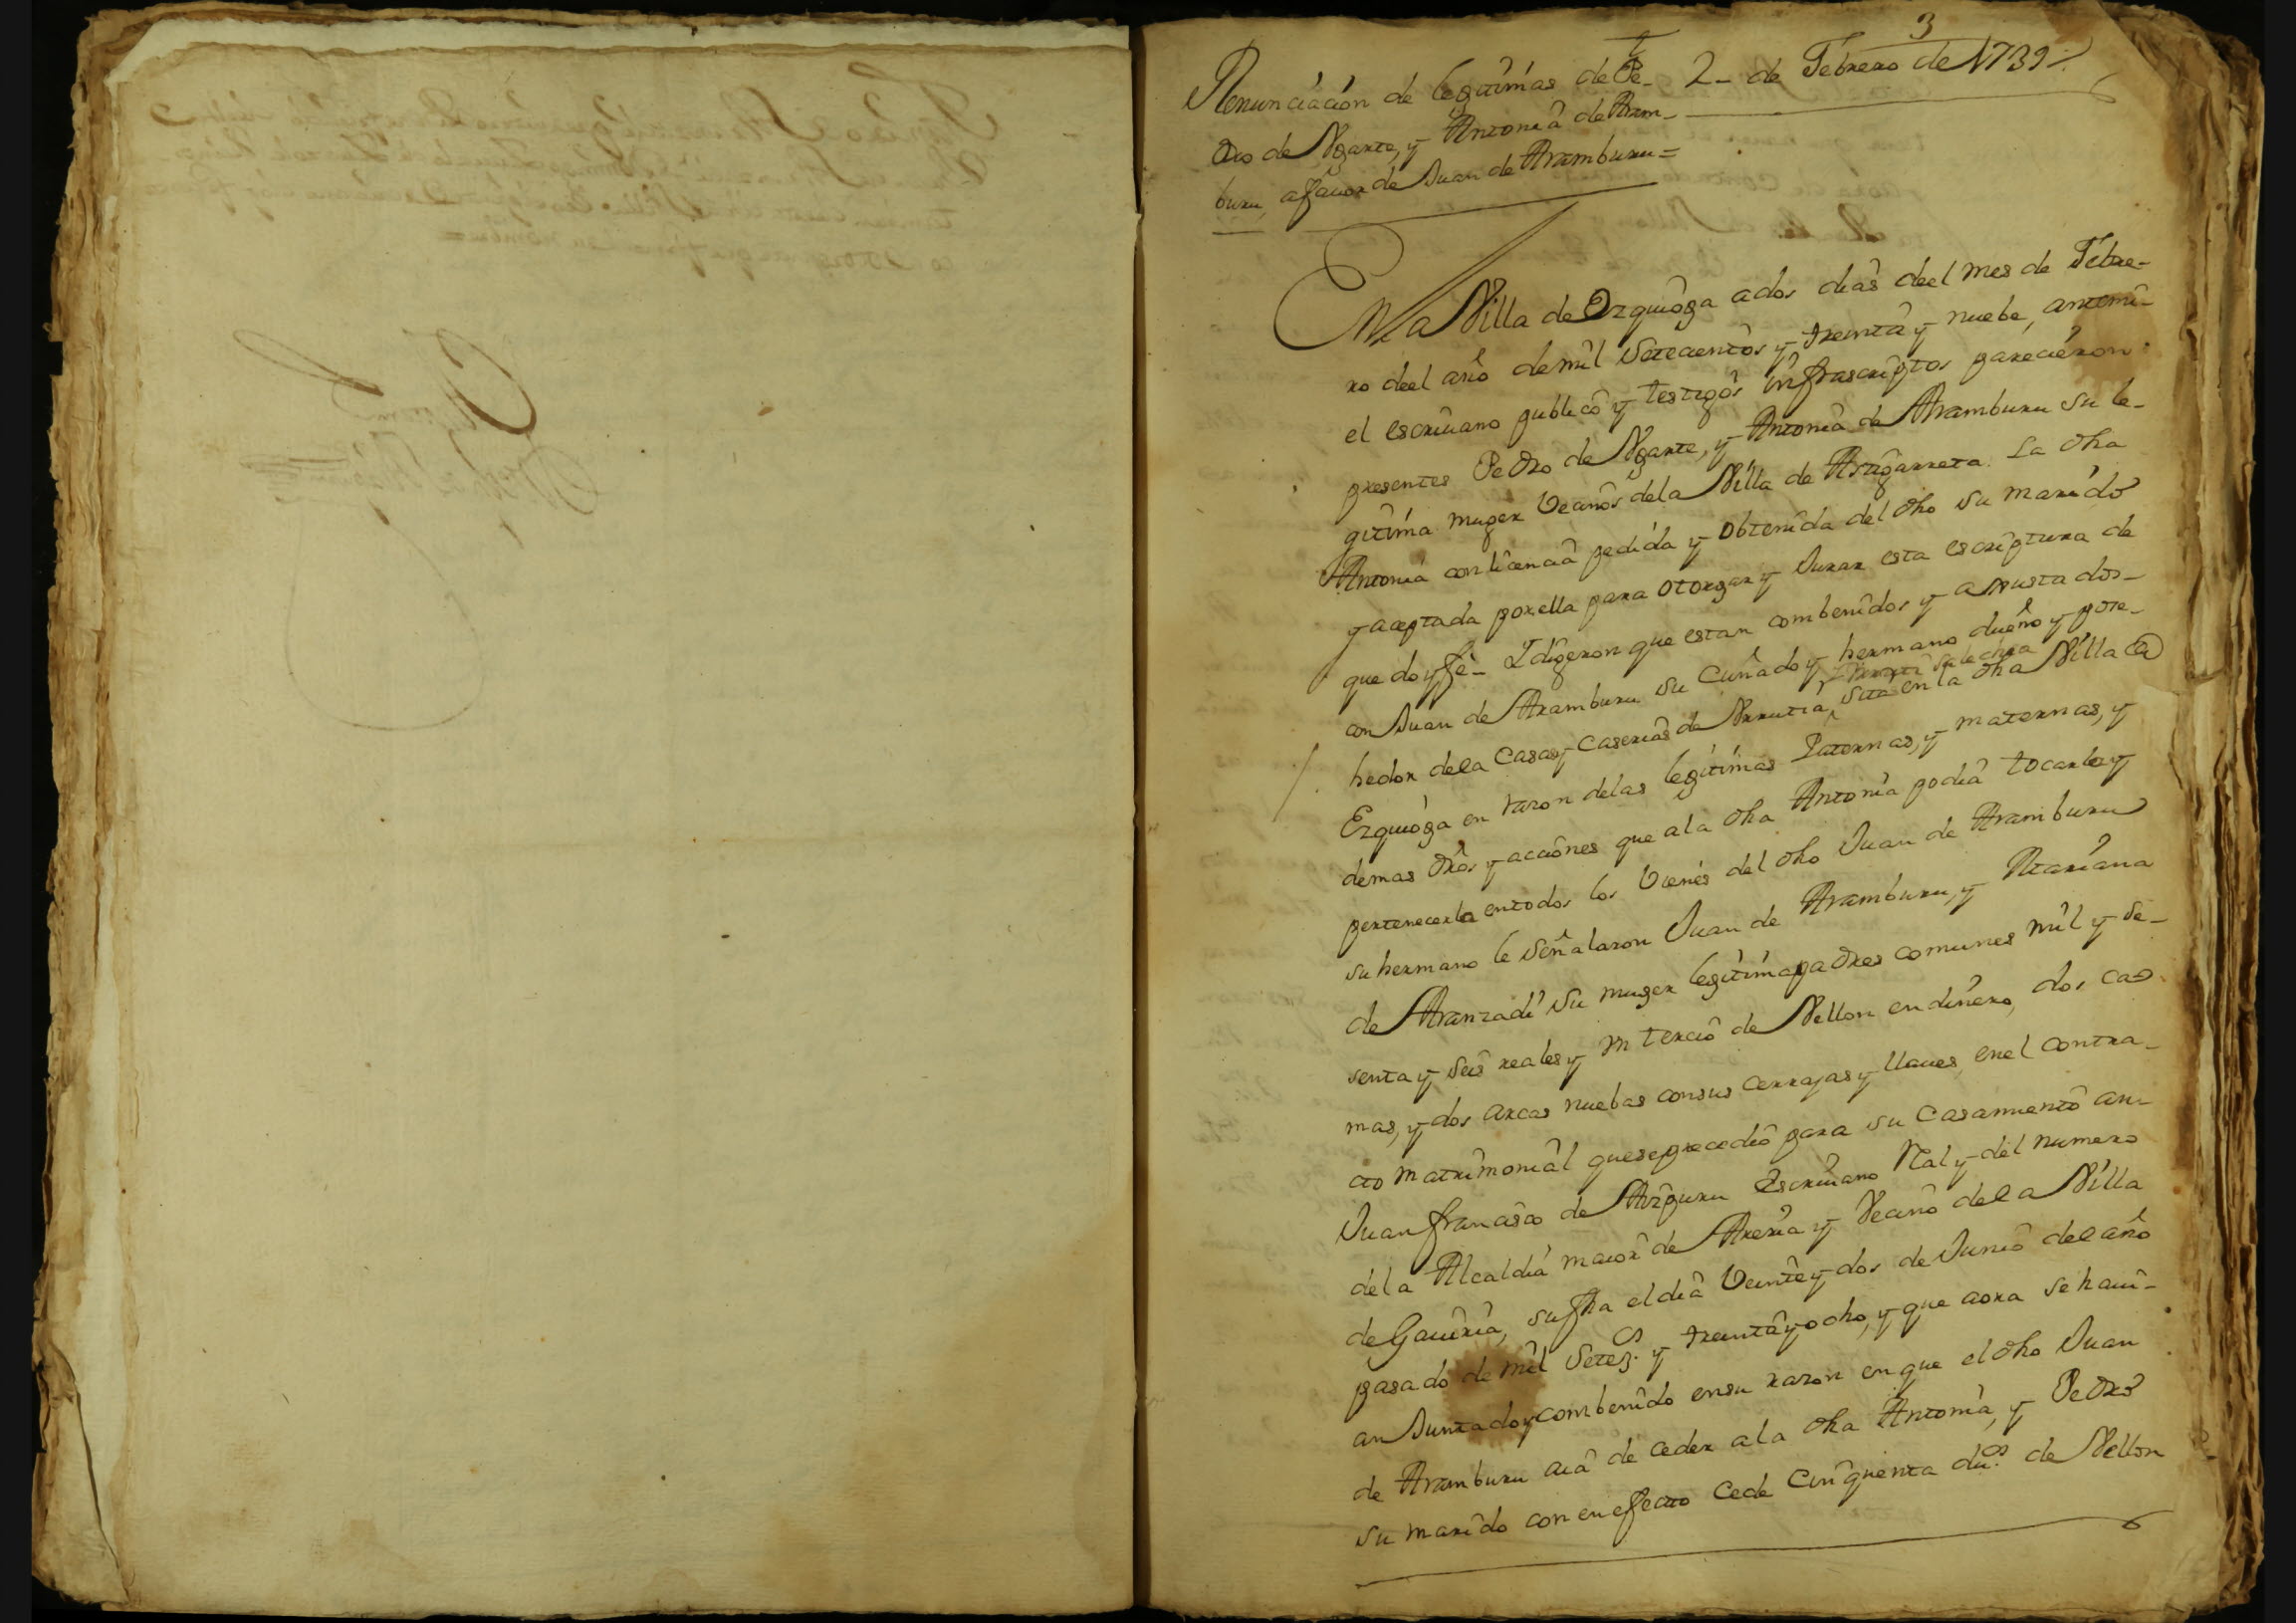 3
Renunciación de legitimas de Pe- 2- de Febrero de 1739
dro de Ugarte, y Antonia de Aram-
buru, a favor de Juan de Aramburu =
En la Villa de Ezquioga a dos dias deel mes de Febre-
ro deel año de mil setecientos y treinta y nuebe, antemi
el escriuano publico y testigos infrascriptos parecieron
presentes Pedro de Ugarte, y Antonia de Aramburu su le-
gitima muger vecinos dela Villa de Astigarreta. La dha
Antonia con licencia pedida y obtenida del dho su marido
y aceptada por ella para otorgar y Jurar esta escriptura de
que doy fe- I digeron que estan combenidos y ajustados-
con Juan de Aramburu su cuñado y hermano dueño y pose-
hedor dela Casas y Caserias de Urrutia, sita en la dha Villa de
Ezquioga en razon delas legitimas Paternas, y maternas, y
demas dros y acciones que ala dha Antonia podia tocarle y
pertenecerla entodos los vienes del dho Juan de Aramburu
su hermano le señalaron Juan de Aramburu, y Mariana
de Aranzadi su muger legitima padres comunes mil y se-
senta y seis reales y un tercio de Vellon en dinero, dos ca-
mas, y dos arcas nuebas consus cerrajas y llaues, enel contra-
cto matrimonial que se precedio para su casamiento an-
Juan francisco de Aizpuru Escriuano Real y del numero
dela Alcaldia maior de Areria y Vecino dela Villa
de Gauiria, su fha el dia veinte y dos de Junio del año
pasado de mil Setecs. y treinta y ocho, y que aora se haui-
an Juntado y combenido ensu razon en que el dho Juan
de Aramburu auia de ceder ala dha Antonia, y Pedro
su marido con en efecto cede cinquenta dus. de Vellon